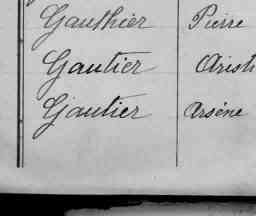 Gauthier Pierre
Gautier Arist
Gautier Arsène